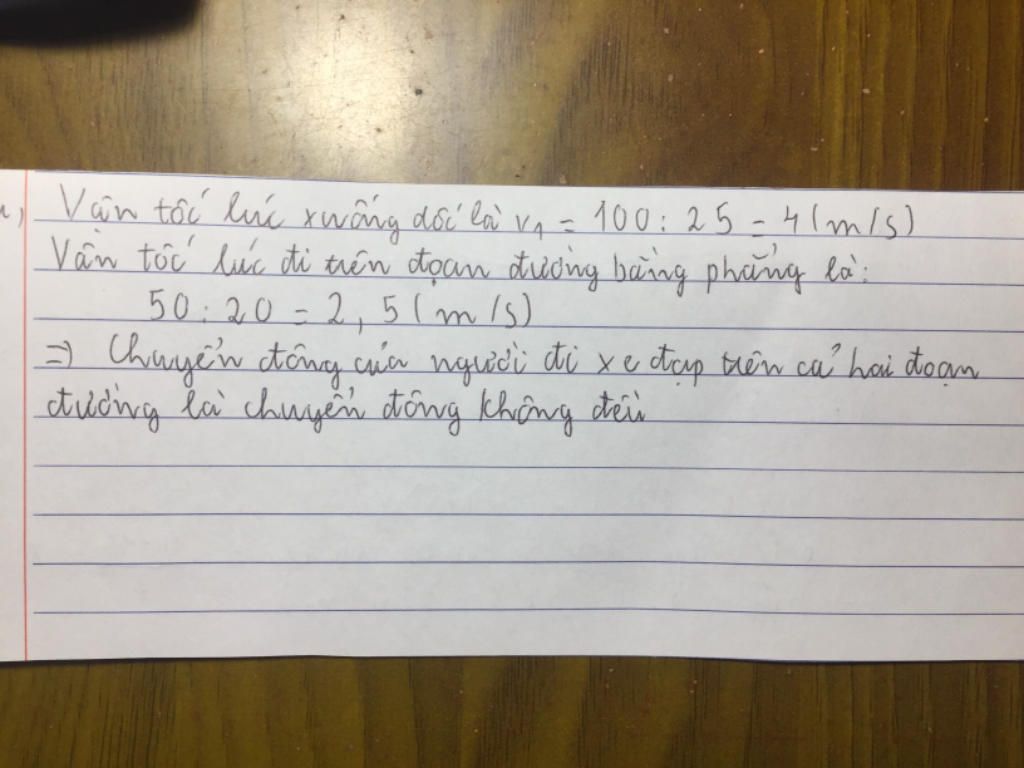 Vận tốc lúc xuống dốc là v₁ = 100 : 25 = 4 (m/s)
Vận tốc lúc đi trên đoạn đường bằng phẳng là:
50 : 20 = 2,5 (m/s)
=> Chuyển động của người đi xe đạp trên cả hai đoạn
đường là chuyển động không đều